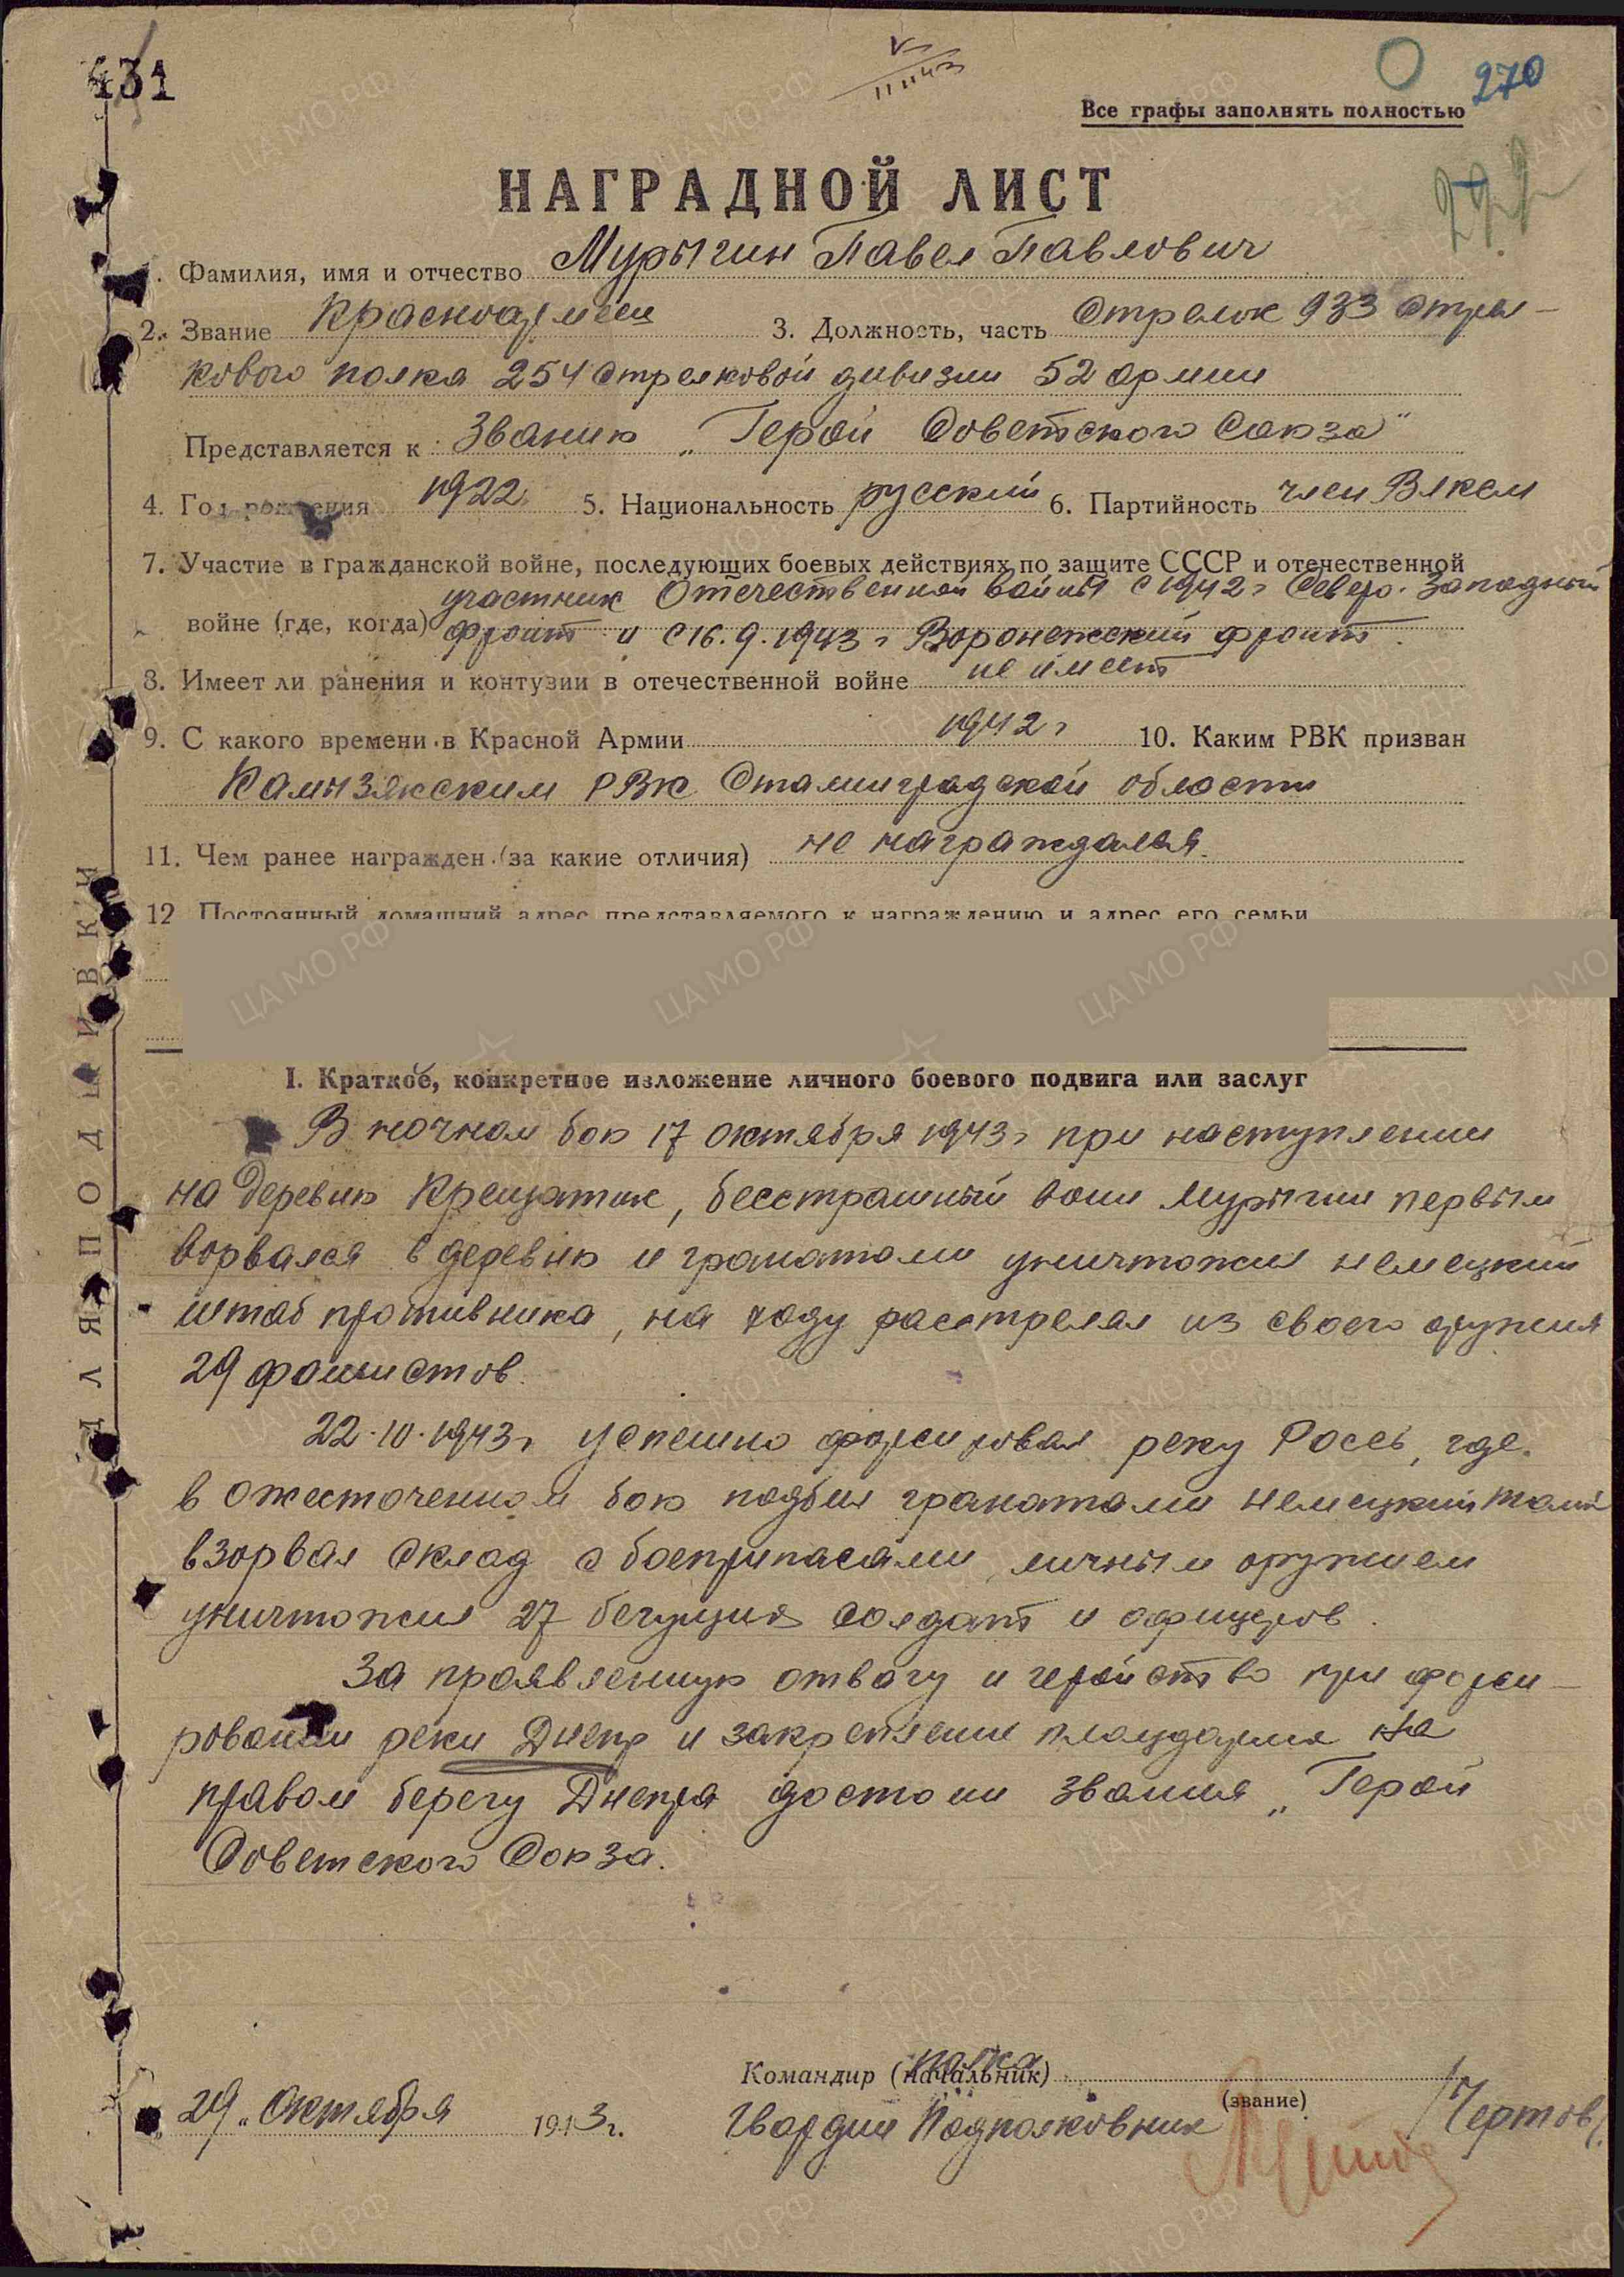 431
270
Все графы заполнять полностью
НАГРАДНОЙ ЛИСТ
1. Фамилия, имя и отчество Мурыгин Павел Павлович
2. Звание Красноармеец 3. Должность, часть Стрелок 933 стрел-
кового полка 254 стрелковой дивизии 52 армии
Представляется к званию „Герой Советского Союза"
4. Год рождения 1922 5. Национальность русский 6. Партийность член ВЛКСМ
7. Участие в гражданской войне, последующих боевых действиях по защите СССР и отечественной
участник Отечественной войны с 1942 г Северо-Западный
войне (где, когда) фронт и с 16.9.1943 г Воронежский фронт.
8. Имеет ли ранения и контузии в отечественной войне не имеет
9. С какого времени в Красной Армии 1942 г 10. Каким РВК призван
Камызякским РВК Сталинградской области
11. Чем ранее награжден (за какие отличия) не награждался.
12 Постоянный домашний адрес представляемого к награждению и адрес его семьи
I. Краткое, конкретное изложение личного боевого подвига или заслуг
В ночном бою 17 октября 1943 г при наступлении
на деревню Крещатик, бесстрашный воин Мурыгин первым
ворвался в деревню и гранатами уничтожил немецкий
штаб противника, на ходу расстрелял из своего оружия
29 фашистов.
22.10.1943 г успешно форсировал реку Рось, где
в ожесточенном бою подбил гранатами немецкий танк
взорвал склад с боеприпасами, личным оружием
уничтожил 27 бегущих солдат и офицеров.
За проявленную отвагу и геройство при форси-
ровании реки Днепр и закрепление плацдарма на
правом берегу Днепра достоин звания „Герой
Советского Союза.
Командир (начальник) полка
(звание)
29 „Октября 1943 г. Гвардии Подполковник /Чертов/
ДЛЯ ПОДШИВКИ
ЦА МО РФ
ПАМЯТЬ НАРОДА